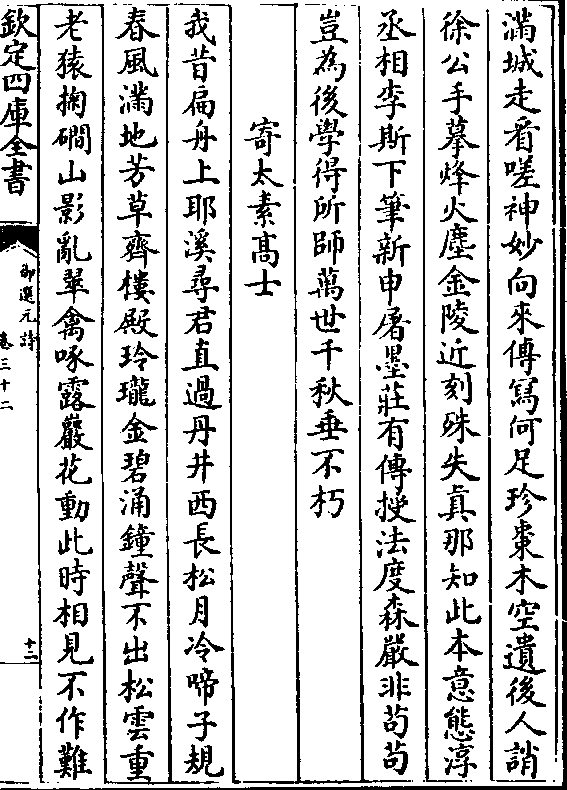 滿城走看嗟神妙向來傳寫何足珍棗木空遺後人誚
徐公手摹烽火塵金陵近刻殊失真那知此本意態淳
丞相李斯下筆新申屠墨莊有傳授法度森嚴非苟苟
豈為後學得所師萬世千秋垂不朽
寄太素髙士
我昔扁舟上耶溪尋君直過丹井西長松月冷啼子規
春風滿地芳草齊樓殿玲瓏金碧涌鐘聲不出松雲重
老猿掬磵山影亂翠禽啄露巖花動此時相見不作難
欽定四庫全書
御選元詩
卷三十二
十二